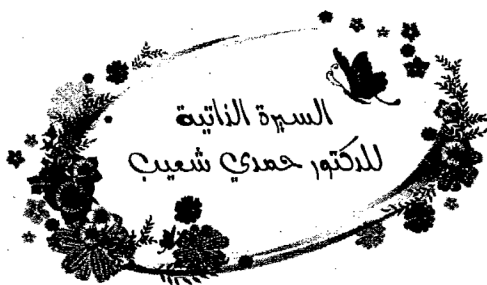 السيرة الذاتية
للدكتور حمدي شعيب